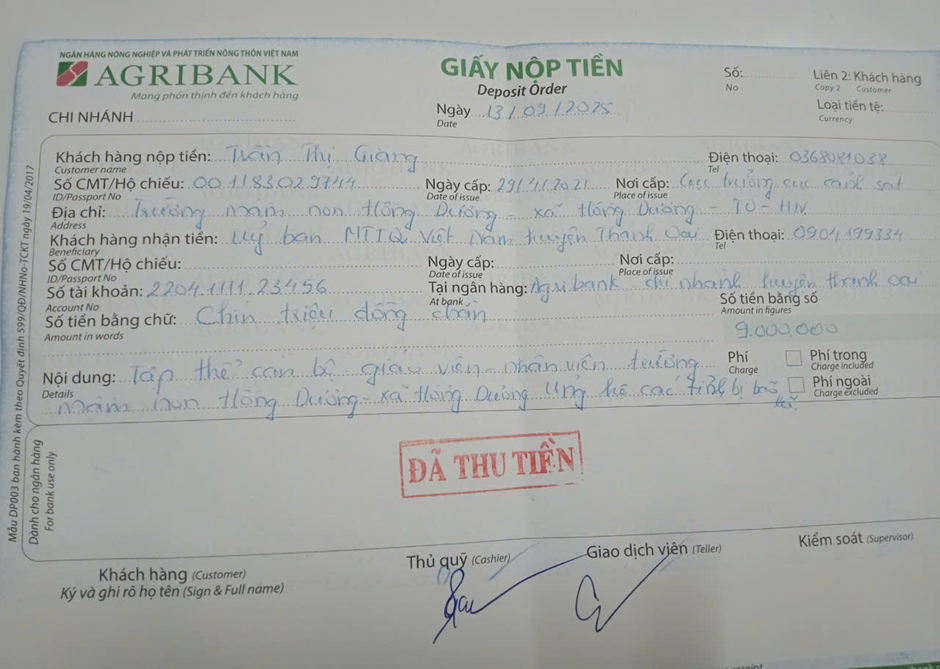 NGÂN HÀNG NÔNG NGHIỆP VÀ PHÁT TRIỂN NÔNG THÔN VIỆT NAM
AGRIBANK
Mang phồn thịnh đến khách hàng
CHI NHÁNH
GIẤY NỘP TIỀN
Deposit Order
Ngày 13/09/2025
Date
Số:
No
Liên 2: Khách hàng
Copy 2 Customer
Loại tiền tệ:
Currency
Khách hàng nộp tiền: Trần Thị Giang Điện thoại: 0368081038
Customer name Tel
Số CMT/Hộ chiếu: 001183029744 Ngày cấp: 29/4/2021 Nơi cấp: Cục trưởng cục cảnh sát
ID/Passport No Date of issue Place of issue
Địa chỉ: Trường mầm non Hồng Dương - xã Hồng Dương - TO - HN
Address
Khách hàng nhận tiền: Uỷ ban MTTQ Việt Nam huyện Thanh Oai Điện thoại: 0904199334
Beneficiary Tel
Số CMT/Hộ chiếu: Ngày cấp: Nơi cấp:
ID/Passport No Date of issue Place of issue
Số tài khoản: 2204.1111.23456 Tại ngân hàng: Agribank chi nhánh huyện thanh oai
Account No At bank
Số tiền bằng chữ: Chín triệu đồng chẵn
Amount in words
Số tiền bằng số
Amount in figures
9.000.000
Nội dung: Tập thể cán bộ giáo viên - nhân viên trường
Details
mầm non Hồng Dương - xã Hồng Dương ủng hộ các tỉnh bị bão
Phí
Charge
Phí trong
Charge included
Phí ngoài
Charge excluded
Mẫu DP003 ban hành kèm theo Quyết định 599/QĐ/NHNo-TCKT ngày 19/04/2017
Dành cho ngân hàng
For bank use only
ĐÃ THU TIỀN
Khách hàng (Customer)
Ký và ghi rõ họ tên (Sign & Full name)
Thủ quỹ (Cashier)
Giao dịch viên (Teller)
Kiểm soát (Supervisor)